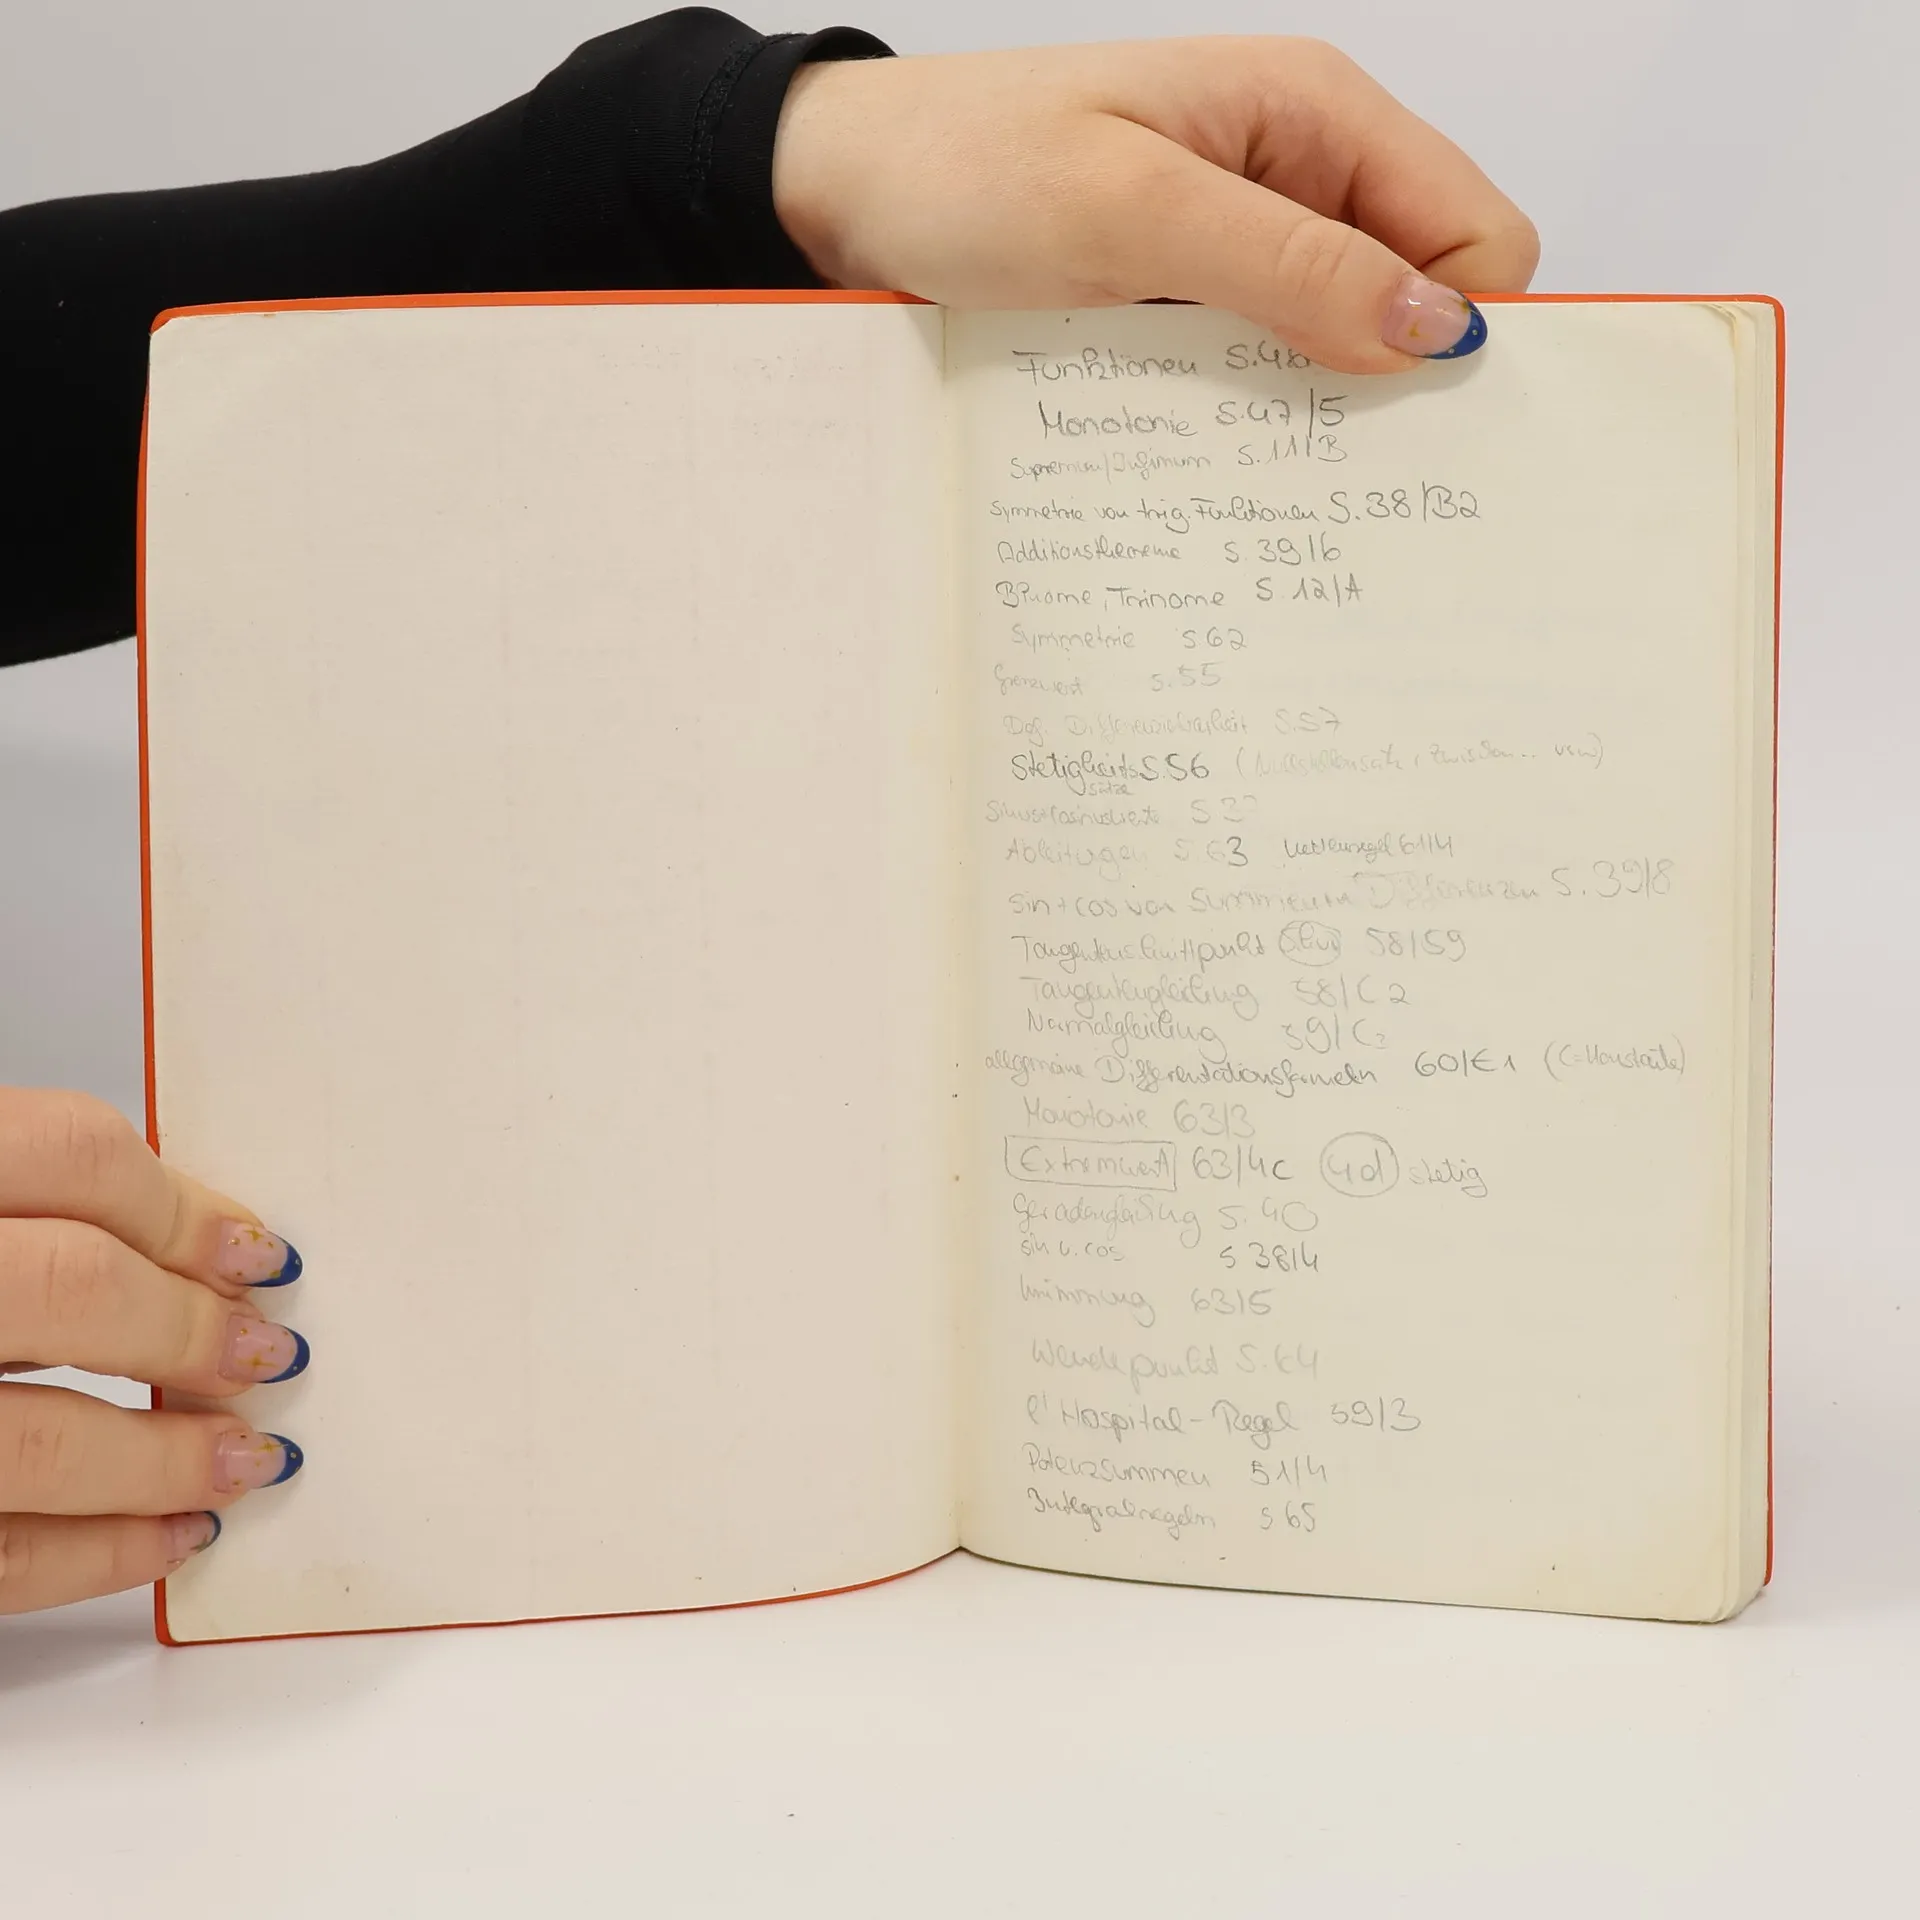 Funktionen S.48
Monotonie S.47/5
Supremum/Infimum S.11/B
Symmetrie von trig. Funktionen S.38/B2
Additionstheoreme S.39/6
Binome, Trinome S.12/A
Symmetrie S62
Grenzwert S.55
Def. Differenzierbarkeit S.57
Stetigkeits S.56 (Nullstellensatz, Zwischen... usw)
sätze
Sinus+Cosinuswerte S 37
Ableitungen S.63 Kettenregel 61/4
sin + cos von Summen u Differenzen S. 39/8
Tangentenschnittpunkt 58/59
Tangentengleichung 58/C2
Normalgleichung 59/C2
allegmaine Differentationsformeln 60/E1 (C=Konstante)
Monotonie 63/3
Extremwert 63/4c 4d stetig
Geradengleichung S. 40
sin u. cos S 38/4
Krümmung 63/5
Wendepunkt S.64
l'Hospital-Regel 59/3
Potenzsummen 51/4
Integralregeln S 65